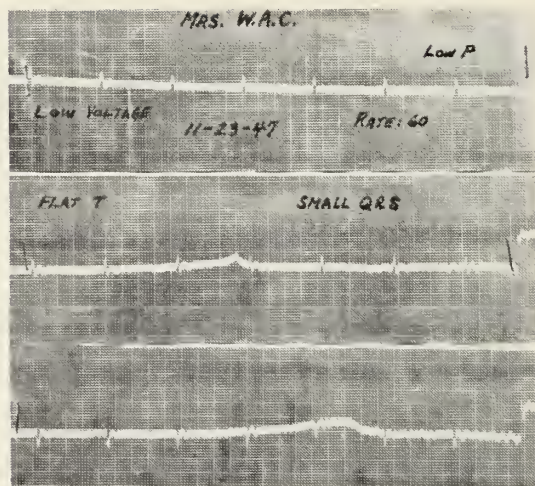 MRS. W.A.C.
LOW P
LOW VOLTAGE
11-23-47
RATE: 60
FLAT T
SMALL QRS